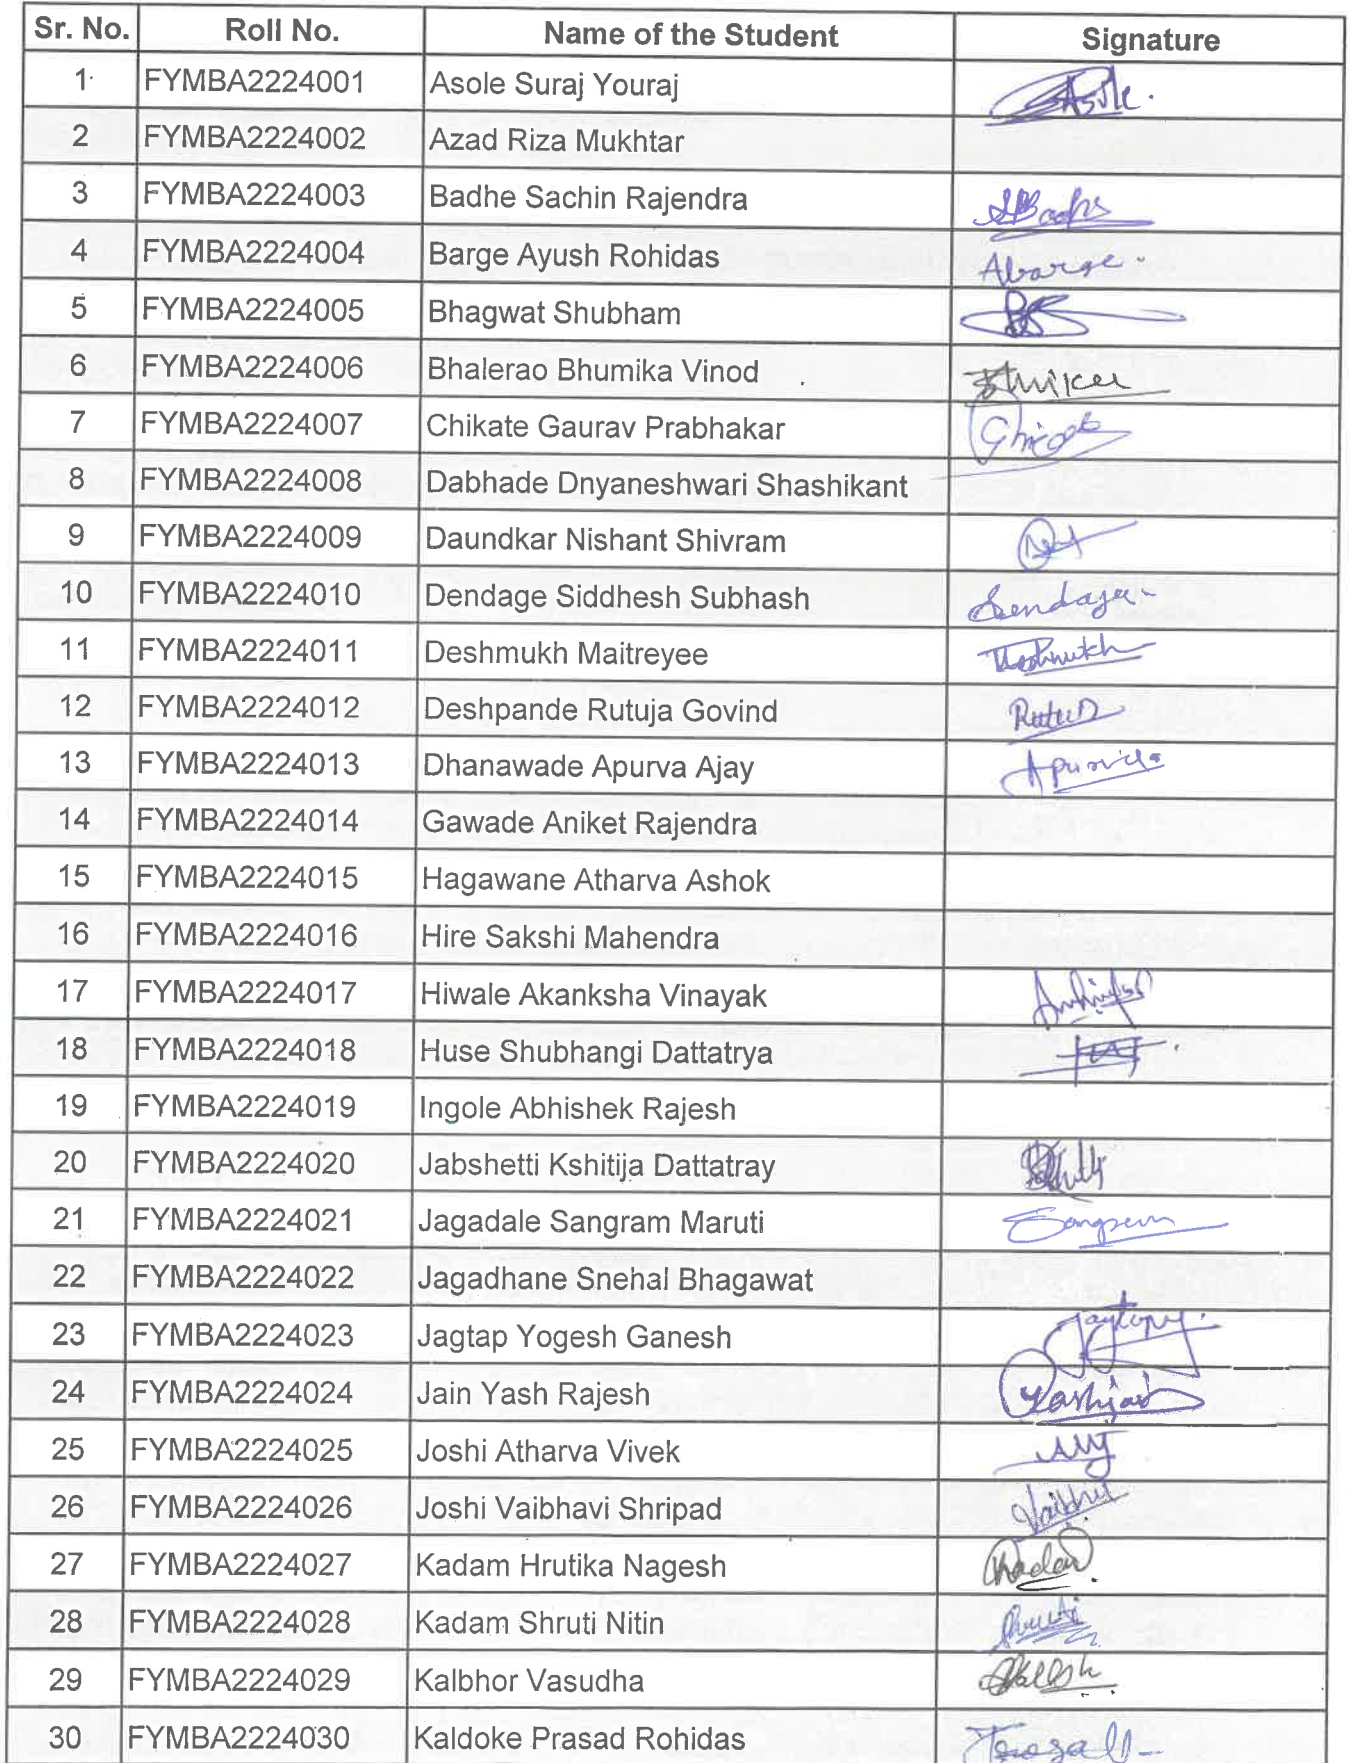 Sr. No. Roll No. Name of the Student Signature
1 FYMBA2224001 Asole Suraj Youraj Asole.
2 FYMBA2224002 Azad Riza Mukhtar
3 FYMBA2224003 Badhe Sachin Rajendra
4 FYMBA2224004 Barge Ayush Rohidas Abarge.
5 FYMBA2224005 Bhagwat Shubham
6 FYMBA2224006 Bhalerao Bhumika Vinod
7 FYMBA2224007 Chikate Gaurav Prabhakar
8 FYMBA2224008 Dabhade Dnyaneshwari Shashikant
9 FYMBA2224009 Daundkar Nishant Shivram
10 FYMBA2224010 Dendage Siddhesh Subhash
11 FYMBA2224011 Deshmukh Maitreyee
12 FYMBA2224012 Deshpande Rutuja Govind
13 FYMBA2224013 Dhanawade Apurva Ajay Apurva
14 FYMBA2224014 Gawade Aniket Rajendra
15 FYMBA2224015 Hagawane Atharva Ashok
16 FYMBA2224016 Hire Sakshi Mahendra
17 FYMBA2224017 Hiwale Akanksha Vinayak
18 FYMBA2224018 Huse Shubhangi Dattatrya
19 FYMBA2224019 Ingole Abhishek Rajesh
20 FYMBA2224020 Jabshetti Kshitija Dattatray
21 FYMBA2224021 Jagadale Sangram Maruti
22 FYMBA2224022 Jagadhane Snehal Bhagawat
23 FYMBA2224023 Jagtap Yogesh Ganesh
24 FYMBA2224024 Jain Yash Rajesh Yashjain
25 FYMBA2224025 Joshi Atharva Vivek
26 FYMBA2224026 Joshi Vaibhavi Shripad
27 FYMBA2224027 Kadam Hrutika Nagesh
28 FYMBA2224028 Kadam Shruti Nitin Shruti
29 FYMBA2224029 Kalbhor Vasudha
30 FYMBA2224030 Kaldoke Prasad Rohidas